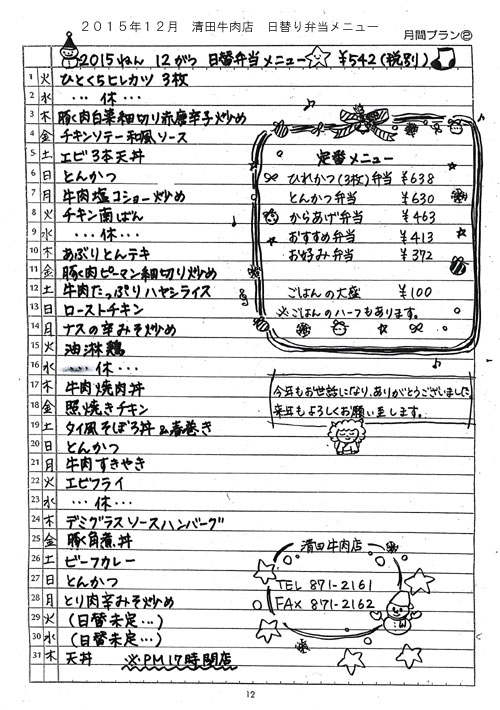 2015年12月 清田牛肉店 日替り弁当メニュー
月間プラン②
2015ねん 12がつ 日替弁当メニュー ¥542(税別)
1 火 ひとくちヒレカツ 3枚
2 水 ・・・休・・・
3 木 豚肉白菜細切り赤唐辛子炒め
4 金 チキンソテー和風ソース
5 土 エビ3本天丼
6 日 とんかつ
7 月 牛肉塩コショー炒め
8 火 チキン南ばん
9 水 ・・・休・・・
10 木 あぶりとんテキ
11 金 豚肉ピーマン細切り炒め
12 土 牛肉たっぷりハヤシライス
13 日 ローストチキン
14 月 ナスの辛みそ炒め
15 火 油淋鶏
16 水 ・・・休・・・
17 木 牛肉焼肉丼
18 金 照焼きチキン
19 土 タイ風そぼろ丼&春巻き
20 日 とんかつ
21 月 牛肉すきやき
22 火 エビフライ
23 水 ・・・休・・・
24 木 デミグラスソースハンバーグ
25 金 豚角煮丼
26 土 ビーフカレー
27 日 とんかつ
28 月 とり肉辛みそ炒め
29 火 (日替未定…)
30 水 (日替未定…)
31 木 天丼 ※PM17時閉店
定番メニュー
ひれかつ(3枚)弁当 ¥638
とんかつ弁当 ¥630
からあげ弁当 ¥463
おすすめ弁当 ¥413
お好み弁当 ¥372
ごはんの大盛 ¥100
※ごはんのハーフもあります。
今年もお世話になり、ありがとうございました
来年もよろしくお願い致します。
清田牛肉店
TEL 871-2161
FAX 871-2162
12